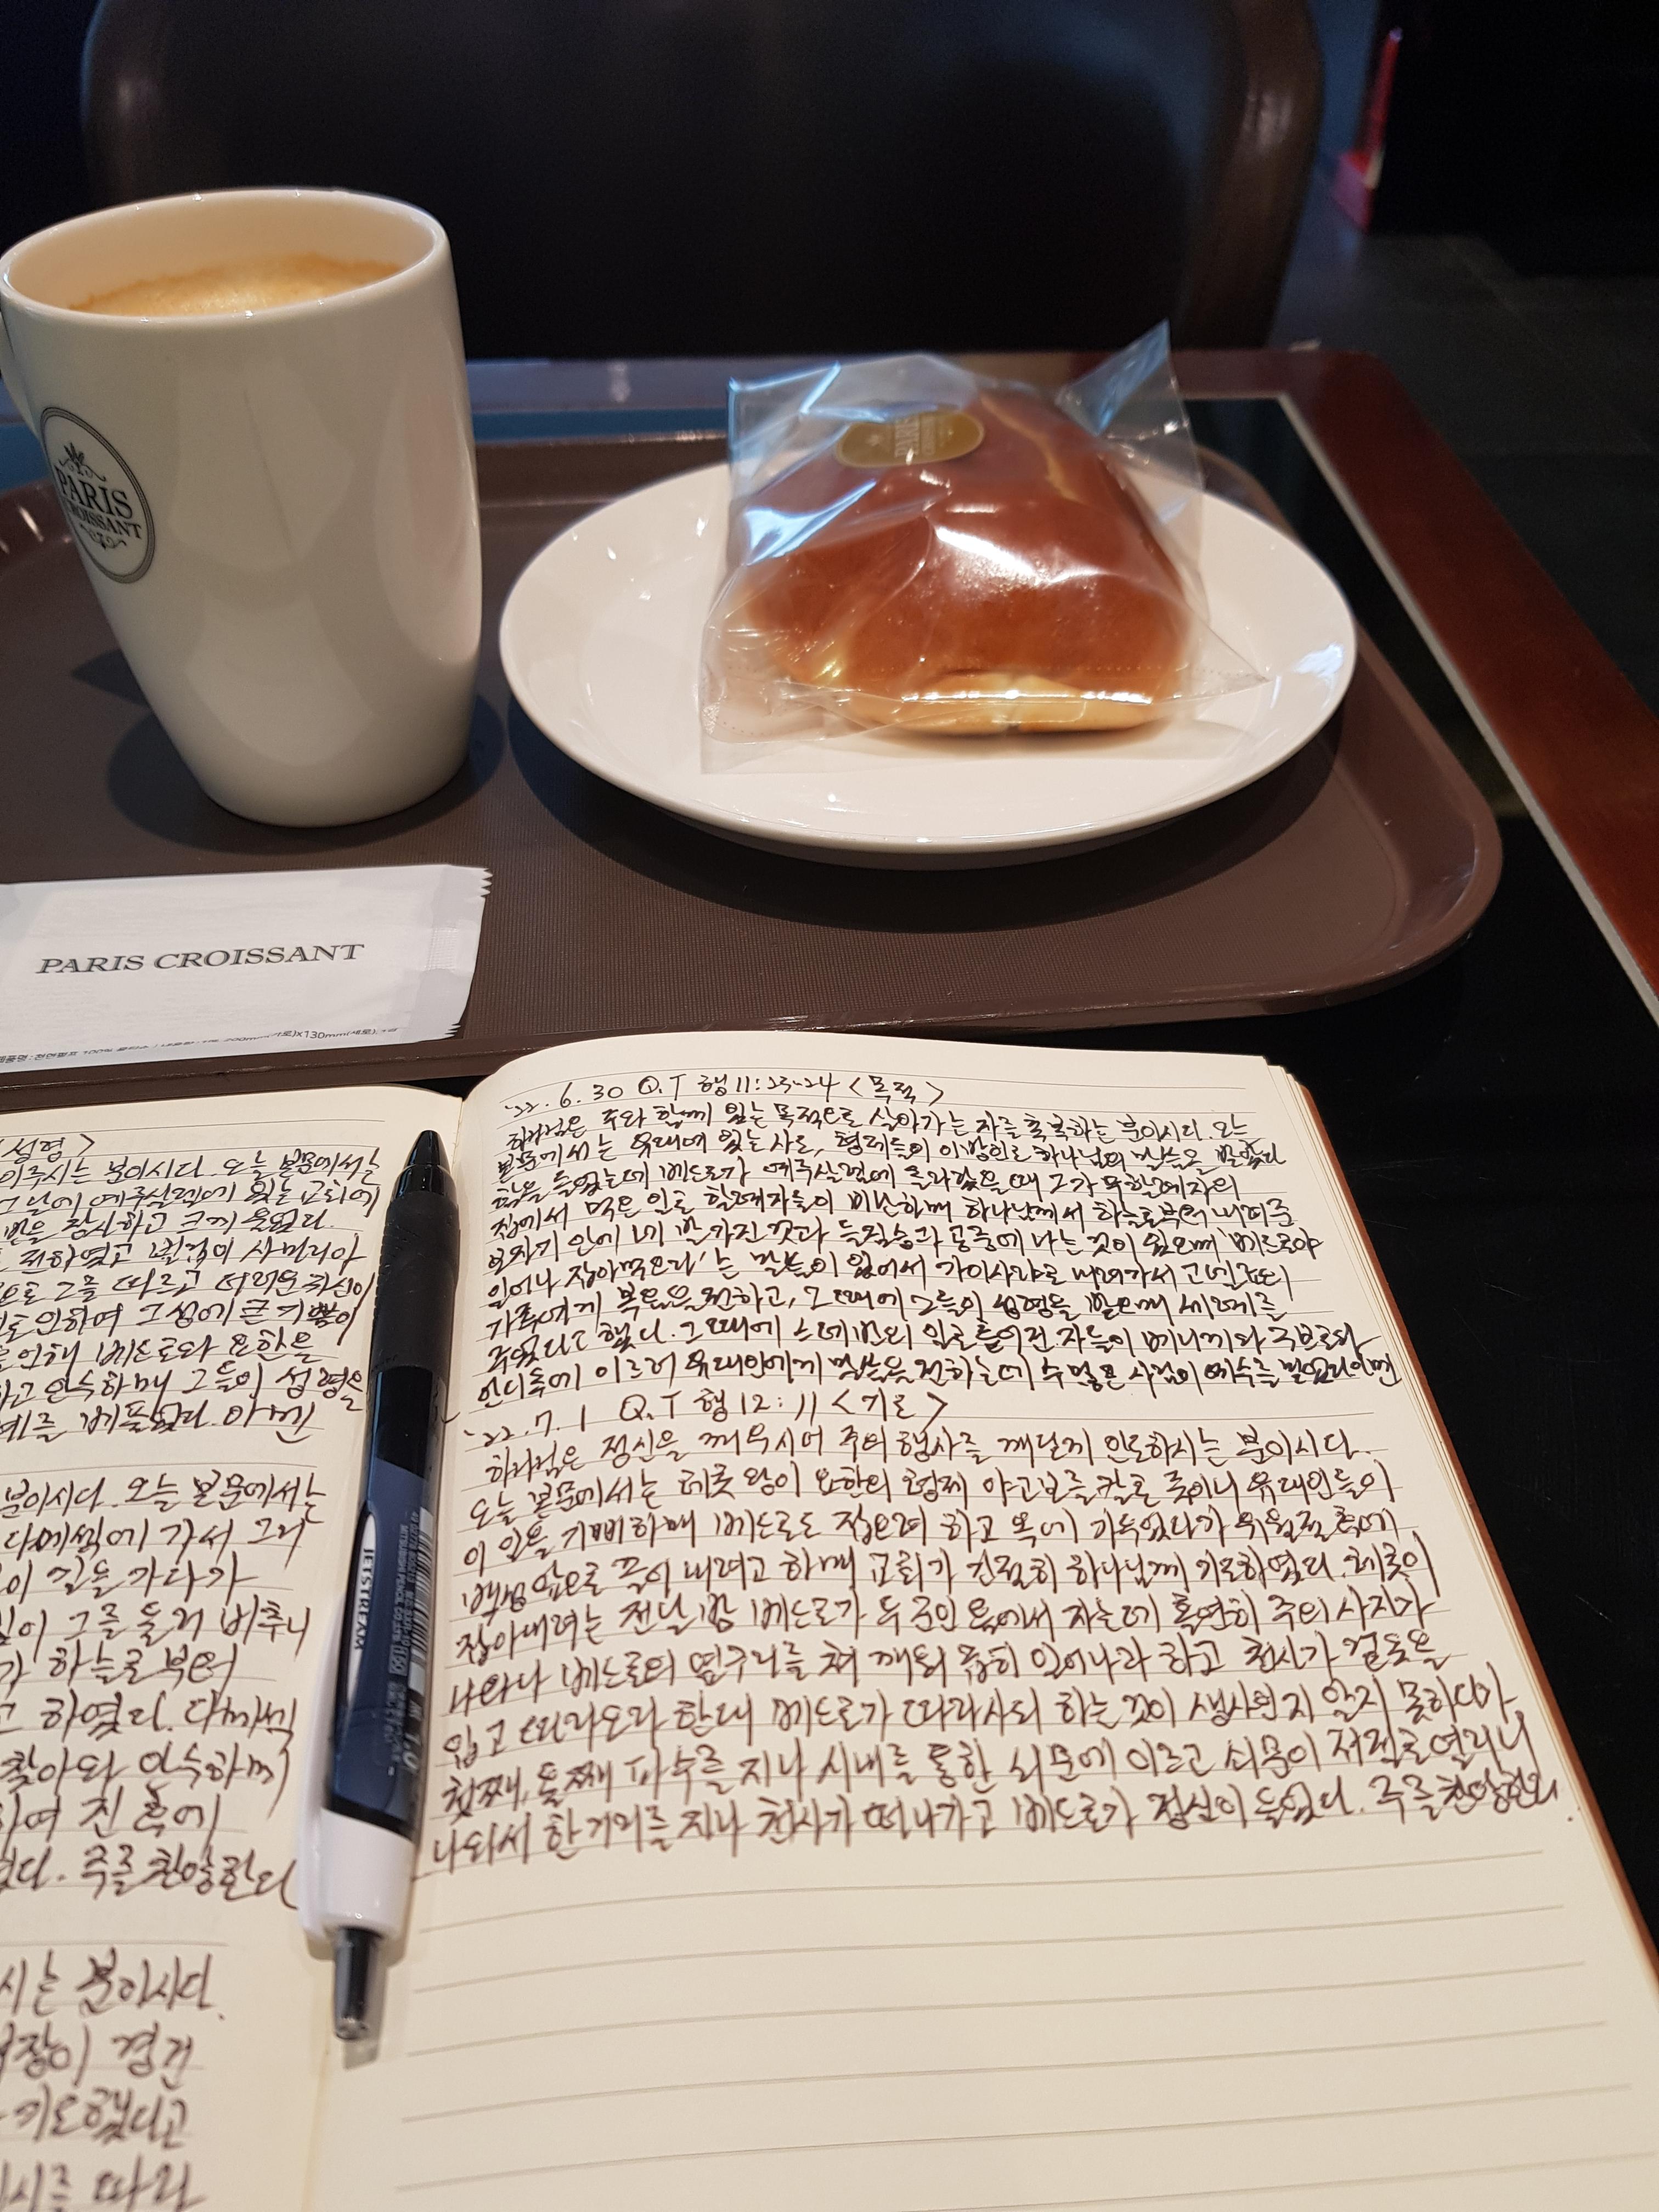 PARIS
CROISSANT
PARIS
PARIS CROISSANT
'22. 6. 30 Q.T 행 11:23-24 <목적>
하나님은 주와 함께 있는 목적으로 살아가는 자를 축복하는 분이시다. 오늘
본문에서는 유대에 있는 사도, 형제들이 이방인도 하나님의 말씀을 받았다
함을 들었는데 베드로가 예루살렘에 올라갔을 때 그가 무할례자의
집에서 먹은 일로 할례자들이 비난하매 하나님께서 하늘로부터 내려준
보자기 안에 네 발 가진 것과 들짐승과 공중에 나는 것이 있으매 '베드로야
일어나 잡아먹으라'는 말씀이 있어서 가이사랴로 내려가서 고넬료의
가족에게 복음을 전하고, 그 때에 그들이 성령을 받으매 세례를
주었다고 했다. 그 때에 스데반의 일로 흩어진 자들이 베니게와 구브로와
안디옥에 이르러 유대인에게 말씀을 전하는데 수많은 사람이 예수를 믿었다. 아멘
'22. 7. 1 Q.T 행 12:11 <기도>
하나님은 정신을 깨우시어 주의 행사를 깨닫게 인도하시는 분이시다.
오늘 본문에서는 헤롯 왕이 요한의 형제 야고보를 칼로 죽이니 유대인들이
이 일을 기뻐하매 베드로도 잡으려 하고 옥에 가두었다가 유월절 후에
백성 앞으로 끌어 내려고 하매 교회가 간절히 하나님께 기도하였다. 헤롯이
잡아내려는 전날 밤 베드로가 두 군인 옆에서 자는데 홀연히 주의 사자가
나와나 베드로의 옆구리를 쳐 깨워 급히 일어나라 하고 천사가 겉옷을
입고 따라오라 한대 베드로가 따라나와 하는 것이 생시인지 알지 못하다가
첫째, 둘째 파수를 지나 시내를 통한 쇠문에 이르고 쇠문이 저절로 열리니
나와서 한 거리를 지나 천사가 떠나가고 베드로가 정신이 들었다. 주를 찬양한다.
성령>
이루시는 분이시다. 오늘 본문에서는
그 날에 예루살렘에 있는 교회에
장사하고 크게 울었다.
전하였고 빌립이 사마리아
그를 따르고 더러운 귀신이
인하여 그 성에 큰 기쁨이
인해 베드로와 요한을
안수하매 그들이 성령을
베풀었다. 아멘
분이시다. 오늘 본문에서는
다메섹에 가서 그의
길을 가다가
그를 둘러 비추니
하늘로부터
하였다. 다메섹
찾아와 안수하매
하여 진 후에
주를 찬양한다
시는 분이시다.
경건
기도했다고
따라
JETSTREAM
MITSUBISHI PENCIL CO.
1.0